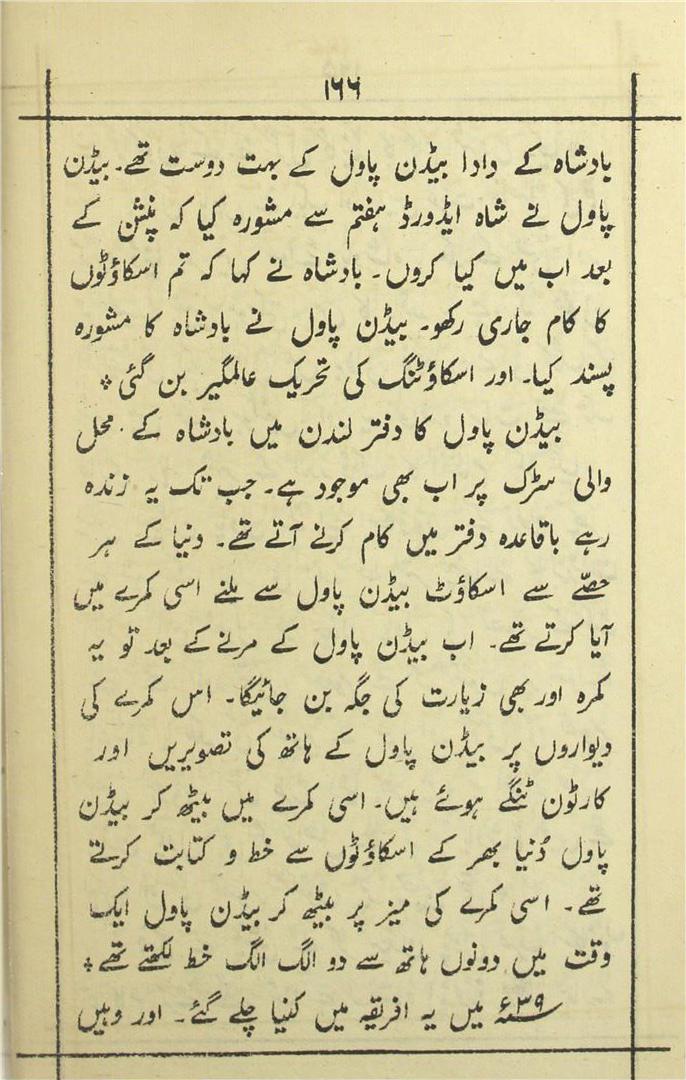 ۱۶۶
بادشاہ کے دادا بیڈن پاول کے بہت دوست تھے۔ بیڈن
پاول نے شاہ ایڈورڈ ہفتم سے مشورہ کیا کہ پنشن کے
بعد اب میں کیا کروں۔ بادشاہ نے کہا کہ تم اسکاؤٹوں
کا کام جاری رکھو۔ بیڈن پاول نے بادشاہ کا مشورہ
پسند کیا۔ اور اسکاؤٹنگ کی تحریک عالمگیر بن گئی ۞
بیڈن پاول کا دفتر لندن میں بادشاہ کے محل
والی سڑک پر اب بھی موجود ہے۔ جب تک یہ زندہ
رہے باقاعدہ دفتر میں کام کرنے آتے تھے۔ دنیا کے ہر
حصّے سے اسکاؤٹ بیڈن پاول سے ملنے اسی کمرے میں
آیا کرتے تھے۔ اب بیڈن پاول کے مرنے کے بعد تو یہ
کمرہ اور بھی زیارت کی جگہ بن جائیگا۔ اس کمرے کی
دیواروں پر بیڈن پاول کے ہاتھ کی تصویریں اور
کارٹون ٹنگے ہوئے ہیں۔ اسی کمرے میں بیٹھ کر بیڈن
پاول دُنیا بھر کے اسکاؤٹوں سے خط و کتابت کرتے
تھے۔ اسی کمرے کی میز پر بیٹھ کر بیڈن پاول ایک
وقت میں دونوں ہاتھ سے دو الگ الگ خط لکھتے تھے ۞
۳۹ء میں یہ افریقہ میں کنیا چلے گئے۔ اور وہیں